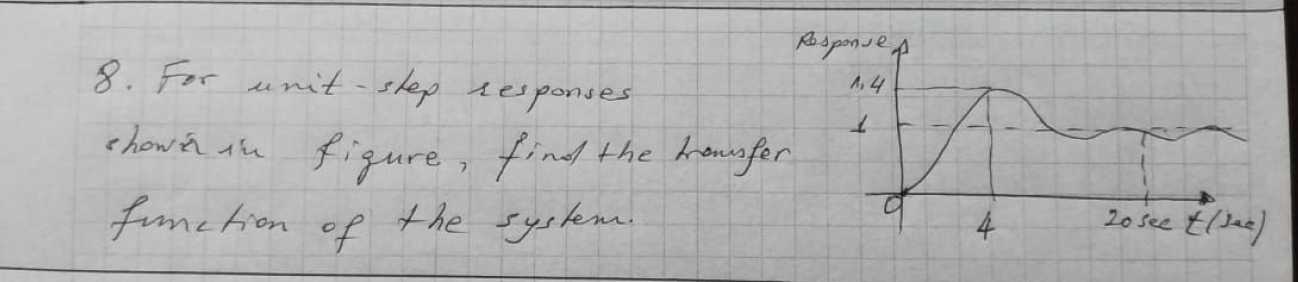 Response
8. For unit-step responses
1,4
1
shown in figure, find the transfer
function of the system.
0
4
20 sec t(sec)